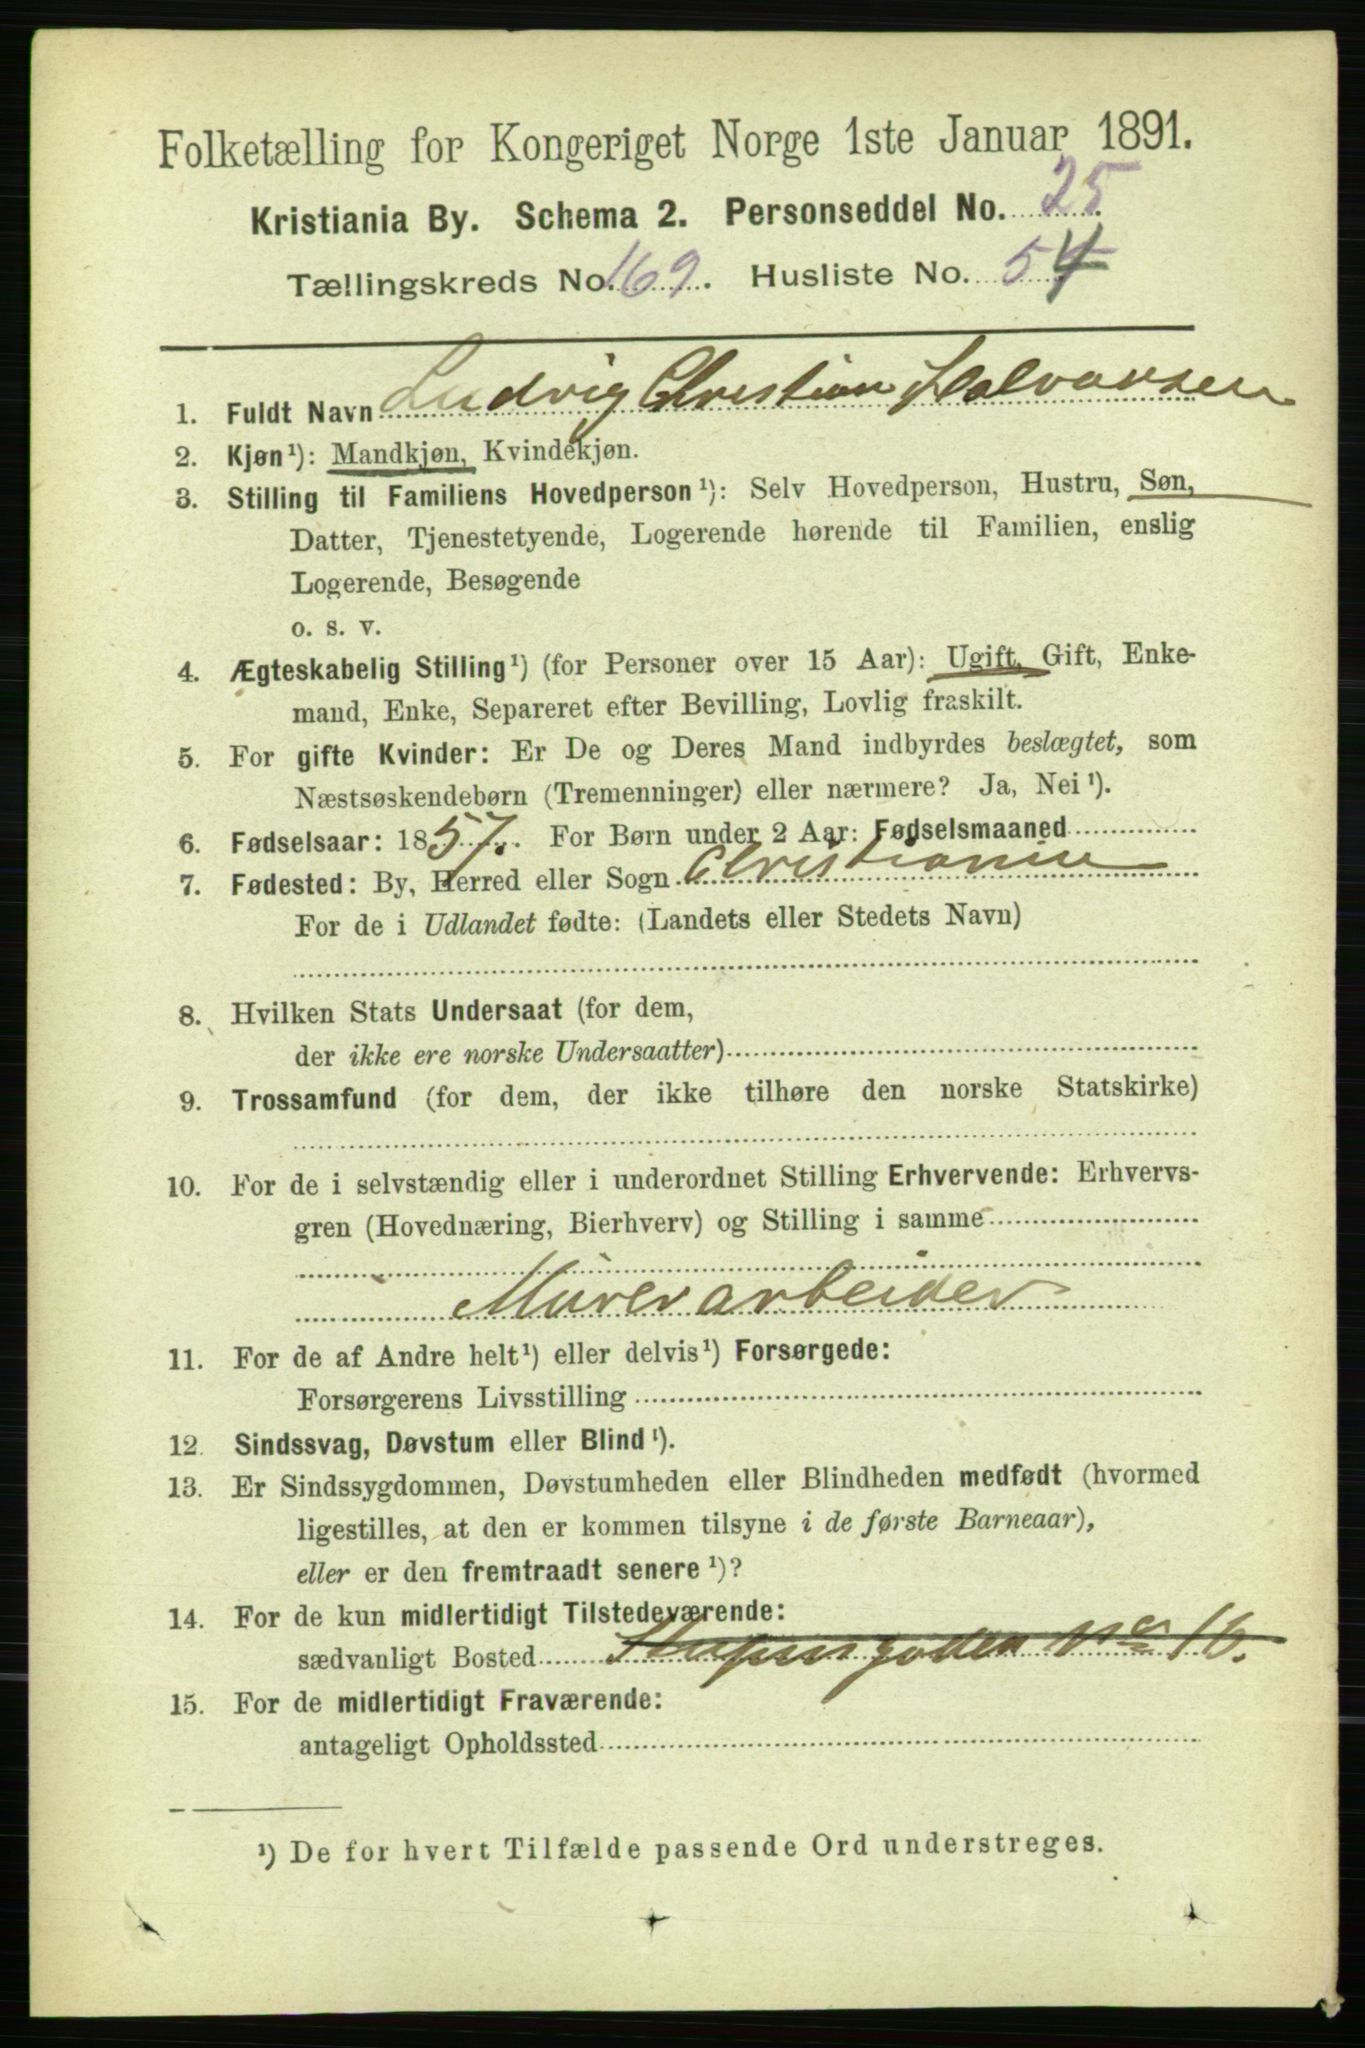 Folketælling for Kongeriget Norge 1ste Januar 1891.
Kristiania By. Schema 2. Personseddel No. 25.
Tællingskreds No. 169. Husliste No. 54
1. Fuldt Navn Ludvig Christian Halvorsen
2. Kjøn¹): Mandkjøn, Kvindekjøn.
3. Stilling til Familiens Hovedperson¹): Selv Hovedperson, Hustru, Søn,
Datter, Tjenestetyende, Logerende hørende til Familien, enslig
Logerende, Besøgende
o. s. v.
4. Ægteskabelig Stilling¹) (for Personer over 15 Aar): Ugift, Gift, Enke-
mand, Enke, Separeret efter Bevilling, Lovlig fraskilt.
5. For gifte Kvinder: Er De og Deres Mand indbyrdes beslægtet, som
Næstsøskendebørn (Tremenninger) eller nærmere? Ja, Nei¹).
6. Fødselsaar: 1857. For Børn under 2 Aar: Fødselsmaaned
7. Fødested: By, Herred eller Sogn Christiania
For de i Udlandet fødte: (Landets eller Stedets Navn)
8. Hvilken Stats Undersaat (for dem,
der ikke ere norske Undersaatter)
9. Trossamfund (for dem, der ikke tilhøre den norske Statskirke)
10. For de i selvstændig eller i underordnet Stilling Erhvervende: Erhvervs-
gren (Hovednæring, Bierhverv) og Stilling i samme
Murerarbeider
11. For de af Andre helt¹) eller delvis¹) Forsørgede:
Forsørgerens Livsstilling
12. Sindssvag, Døvstum eller Blind¹).
13. Er Sindssygdommen, Døvstumheden eller Blindheden medfødt (hvormed
ligestilles, at den er kommen tilsyne i de første Barneaar),
eller er den fremtraadt senere¹)?
14. For de kun midlertidigt Tilstedeværende:
sædvanligt Bosted No 16.
15. For de midlertidigt Fraværende:
antageligt Opholdssted
¹) De for hvert Tilfælde passende Ord understreges.